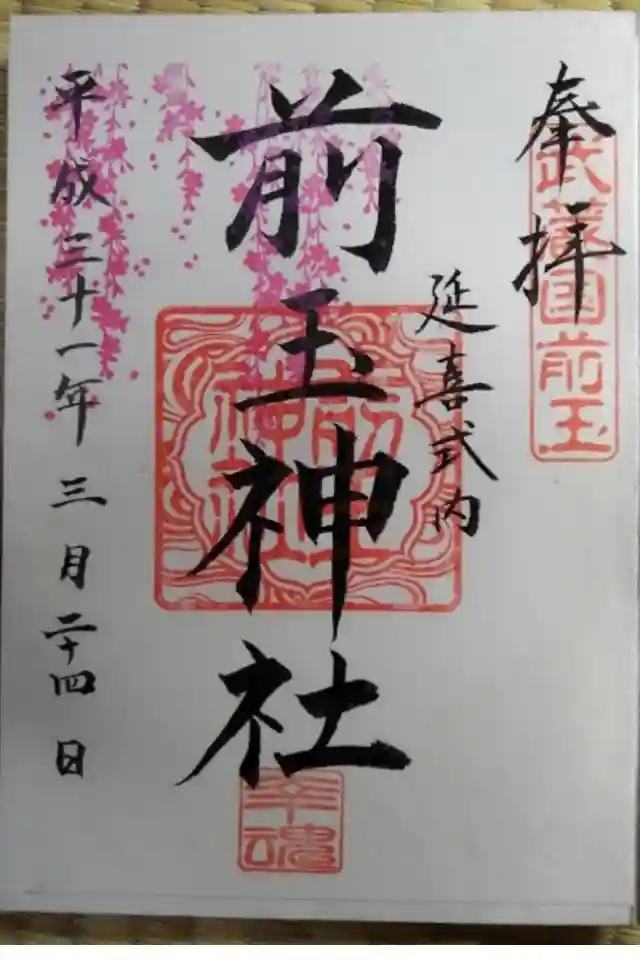 奉拝
武蔵国前玉
延喜式内
前玉神社
前玉神社
幸魂
平成三十一年三月二十四日